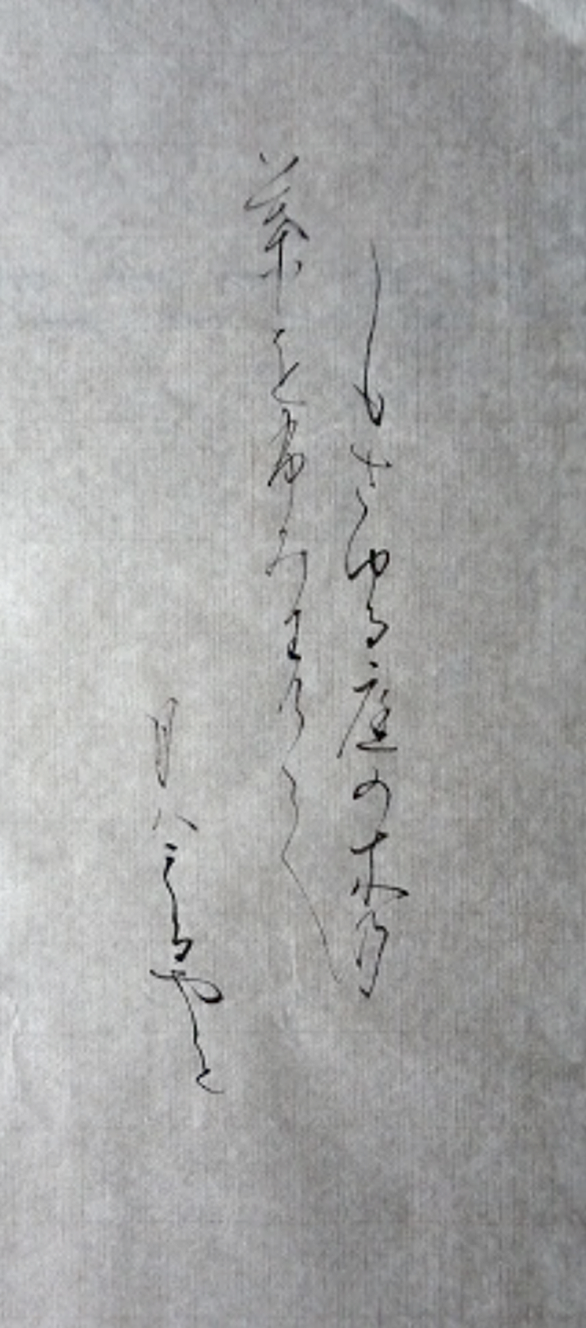 しもさゆる庭の木の
葉をふみわけて
月はみるやと